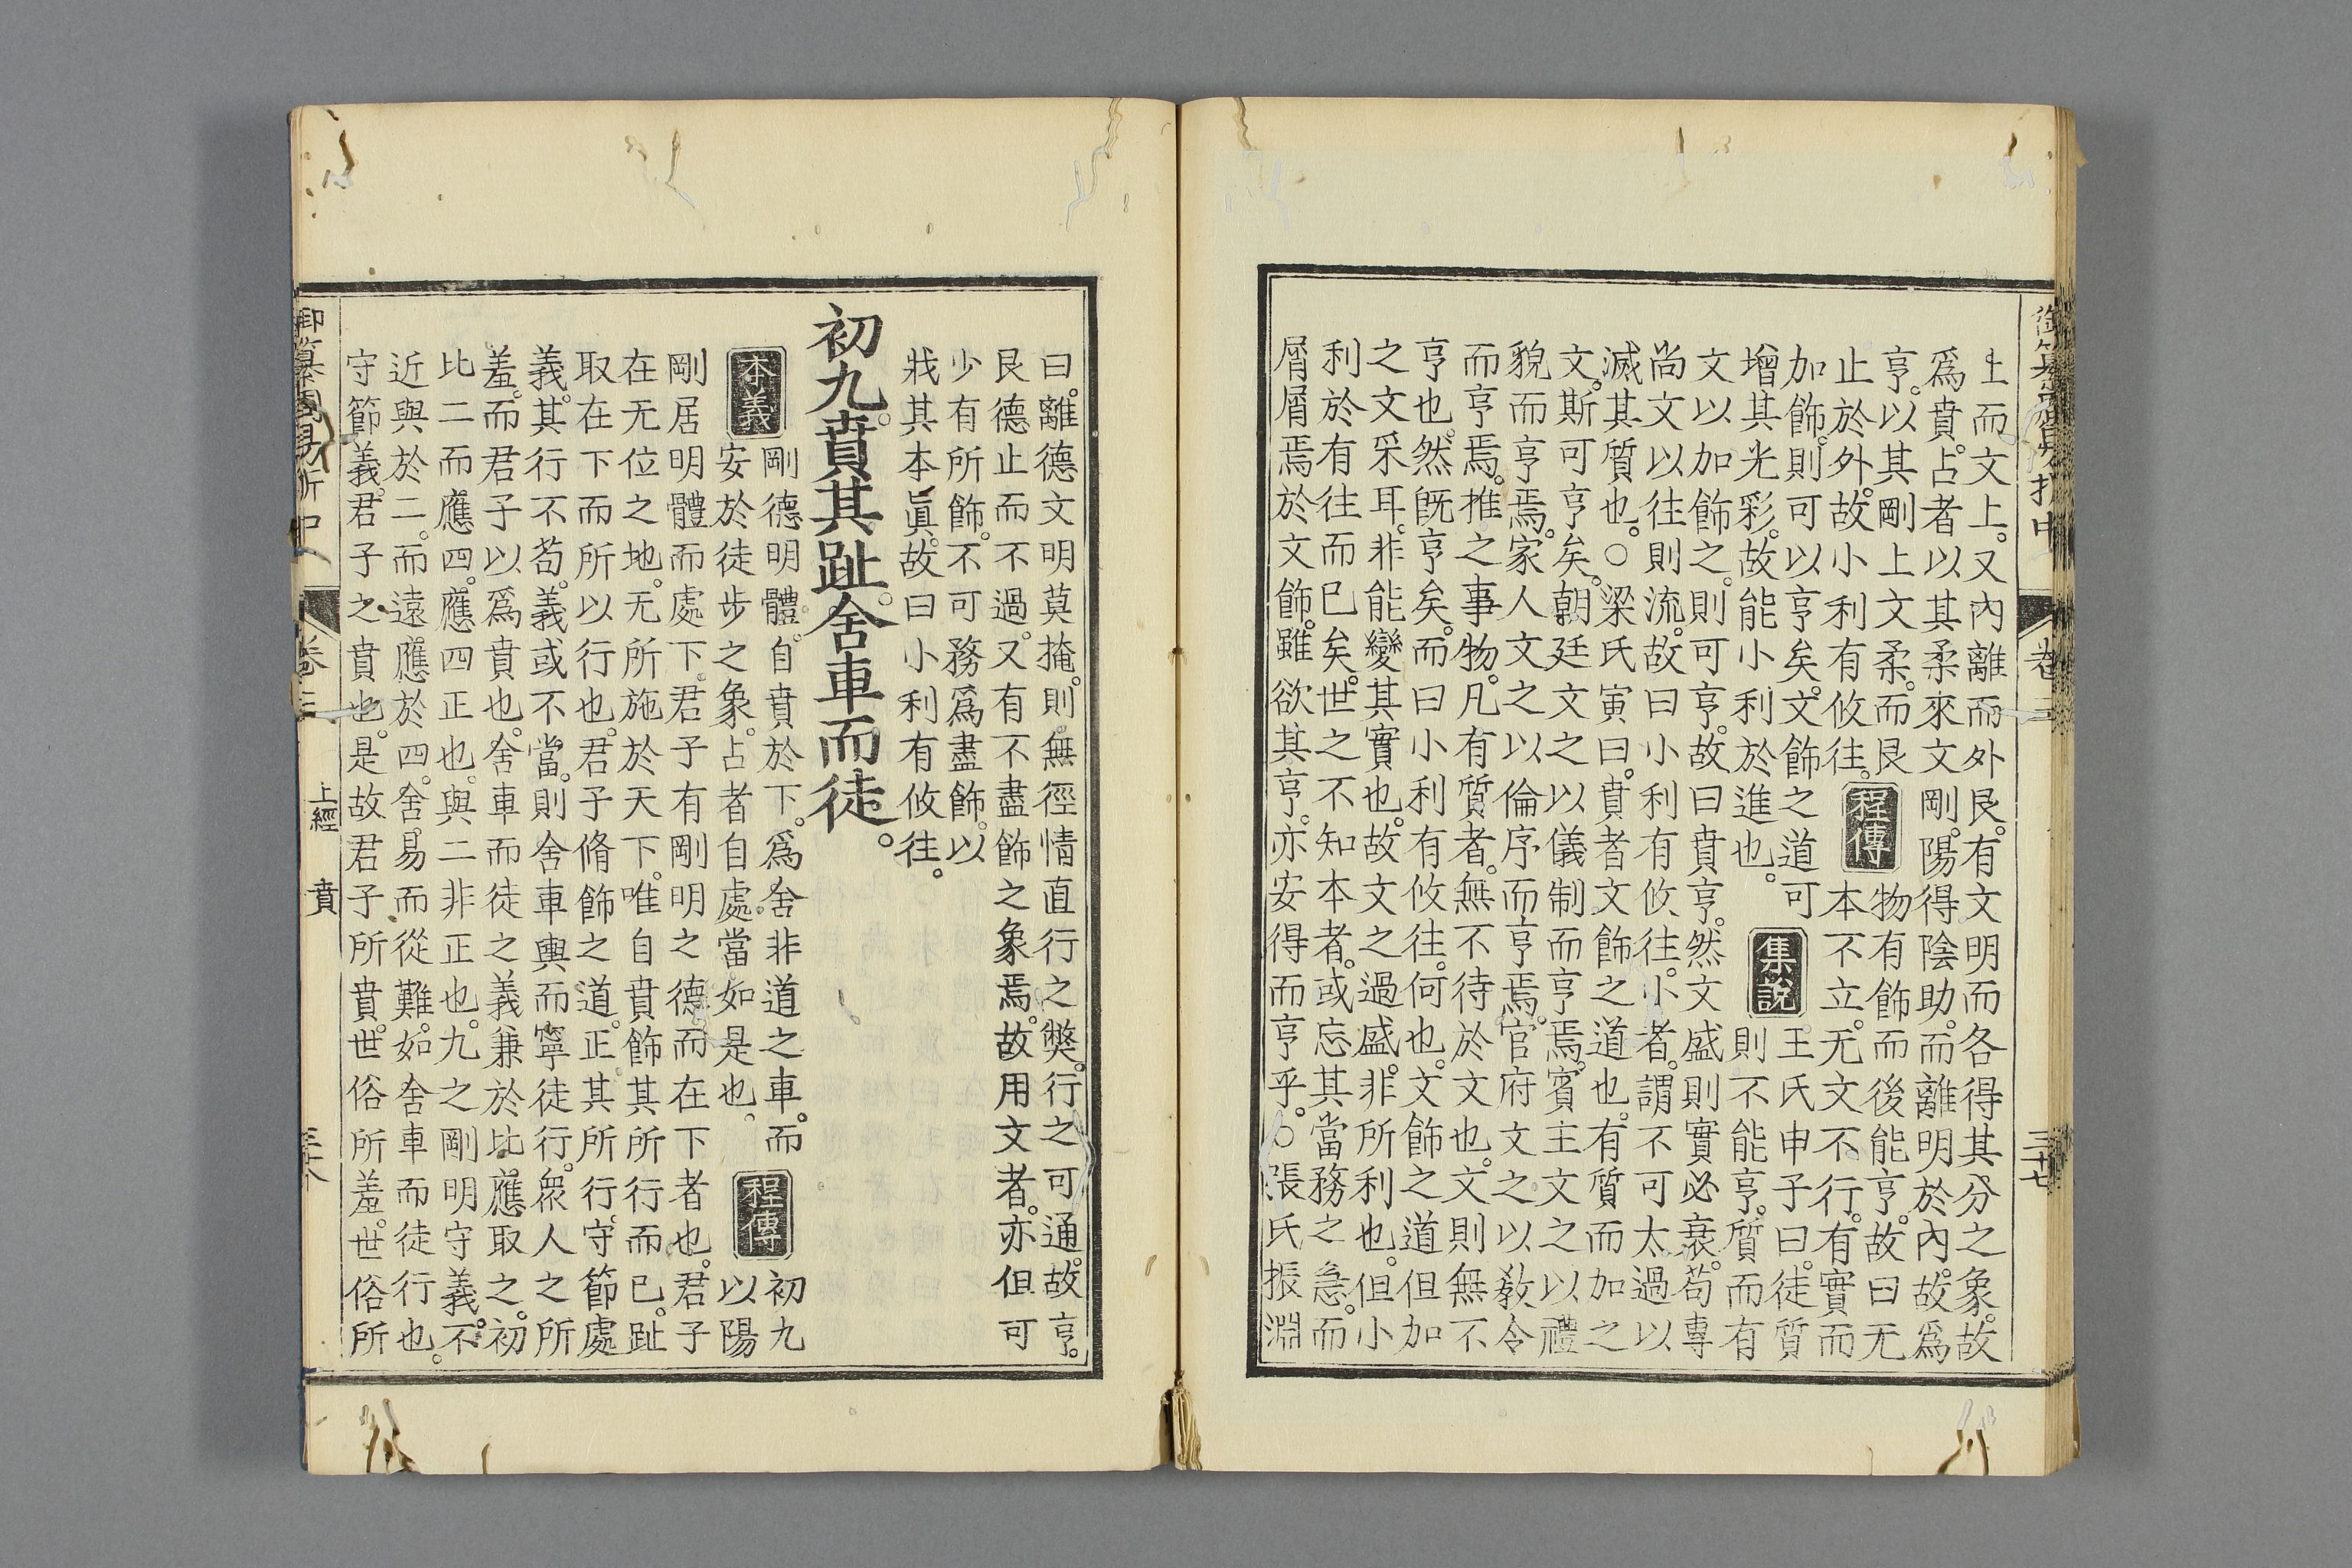 御纂周易折中 卷三 三十七
上而文上。又內離而外艮。有文明而各得其分之象。故
爲賁。占者以其柔來文剛。陽得陰助。而離明於內。故爲
亨。以其剛上文柔。而艮
止於外。故小利有攸往。
程傳
物有飾而後能亨。故曰无
本不立。无文不行。有實而
加飾。則可以亨矣。文飾之道可
增其光彩。故能小利於進也。
集說
王氏申子曰。徒質
則不能亨。質而有
文以加飾之。則可亨。故曰賁亨。然文盛則實必衰。苟專
尚文以往則流。故曰小利有攸往。小者。謂不可太過以
滅其質也。○梁氏寅曰。賁者文飾之道也。有質而加之
文。斯可亨矣。朝廷文之以儀制而亨焉。賓主文之以禮
貌而亨焉。家人文之以倫序而亨焉。官府文之以敎令
而亨焉。推之事物。凡有質者。無不待於文也。文則無不
亨也。然旣亨矣。而曰小利有攸往。何也。文飾之道但加
之文采耳。非能變其實也。故文之過盛。非所利也。但小
利於有往而已矣。世之不知本者。或忘其當務之急。而
屑屑焉於文飾。雖欲其亨。亦安得而亨乎。○張氏振淵
曰。離德文明莫掩。則無徑情直行之弊。行之可通。故亨。
艮德止而不過。又有不盡飾之象焉。故用文者。亦但可
少有所飾。不可務爲盡飾。以
戕其本眞。故曰小利有攸往。
初九。賁其趾。舍車而徒。
本義
剛德明體。自賁於下。爲舍非道之車。而
安於徒步之象。占者自處。當如是也。
程傳
初九
以陽
剛居明體而處下。君子有剛明之德而在下者也。君子
在无位之地。无所施於天下。唯自賁飾其所行而已。趾
取在下而所以行也。君子脩飾之道。正其所行。守節處
義。其行不苟。義或不當。則舍車輿而寧徒行。衆人之所
羞。而君子以爲賁也。舍車而徒之義兼於比應取之。初
比二而應四。應四正也。與二非正也。九之剛明守義。不
近與於二。而遠應於四。舍易而從難。如舍車而徒行也。
守節義。君子之賁也。是故君子所賁。世俗所羞。世俗所
御纂周易折中 卷三 上經 賁 三十八